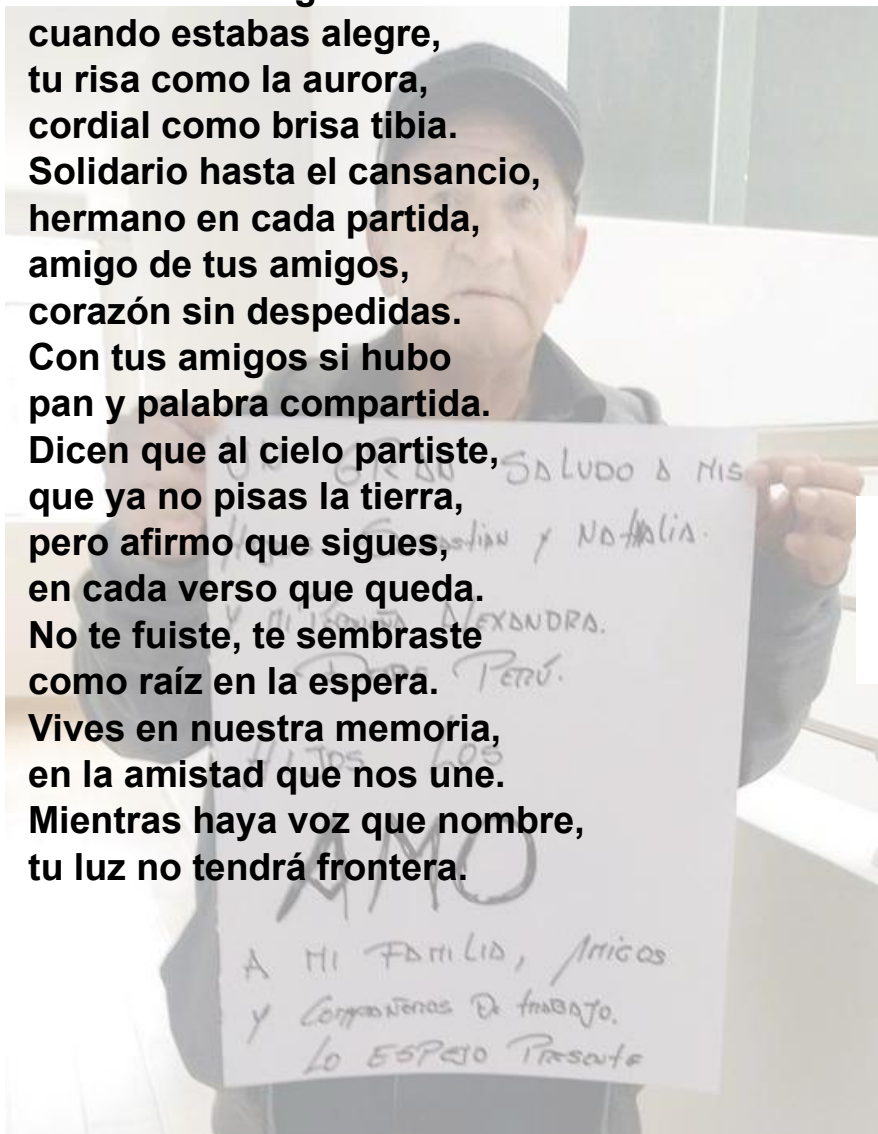 cuando estabas alegre,
tu risa como la aurora,
cordial como brisa tibia.
Solidario hasta el cansancio,
hermano en cada partida,
amigo de tus amigos,
corazón sin despedidas.
Con tus amigos si hubo
pan y palabra compartida.
Dicen que al cielo partiste,
que ya no pisas la tierra,
pero afirmo que sigues,
en cada verso que queda.
No te fuiste, te sembraste
como raíz en la espera.
Vives en nuestra memoria,
en la amistad que nos une.
Mientras haya voz que nombre,
tu luz no tendrá frontera.
UN GRAN SALUDO A MIS
y NAthALiA.
Y MI ALEXANDRA.
PERÚ.
HIJOS LOS
AMO
A MI FAMILIA, AMIGOS
Y COMPAÑEROS DE tRABAJO.
LO ESPEJO PRESENtE